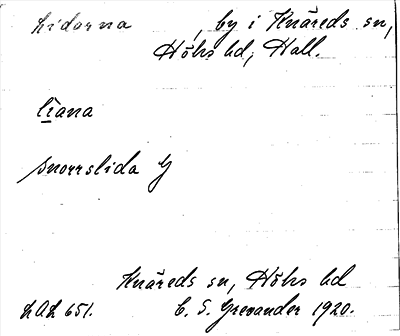 Lidarna , by i Knäreds sn,
Höks hd, Hall.
liana
snorrslida G
Knäreds sn, Höks hd
LAL 651. C. S. Grevander 1920.